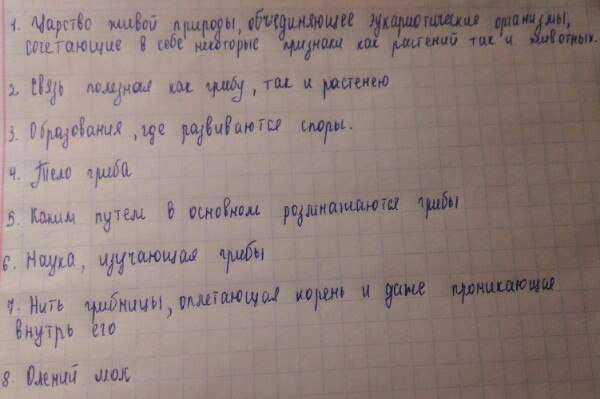 1. Царство живой природы, объединяющее эукариотические организмы,
сочетающие в себе некоторые признаки как растений так и животных.
2. Связь полезная как грибу, так и растенею
3. Образования, где развиваются споры.
4. Тело гриба
5. Каким путем в основном размнажаются грибы
6. Наука, изучающая грибы
7. Нить грибницы, оплетающая корень и даже проникающая
внутрь его
8. Олений мох